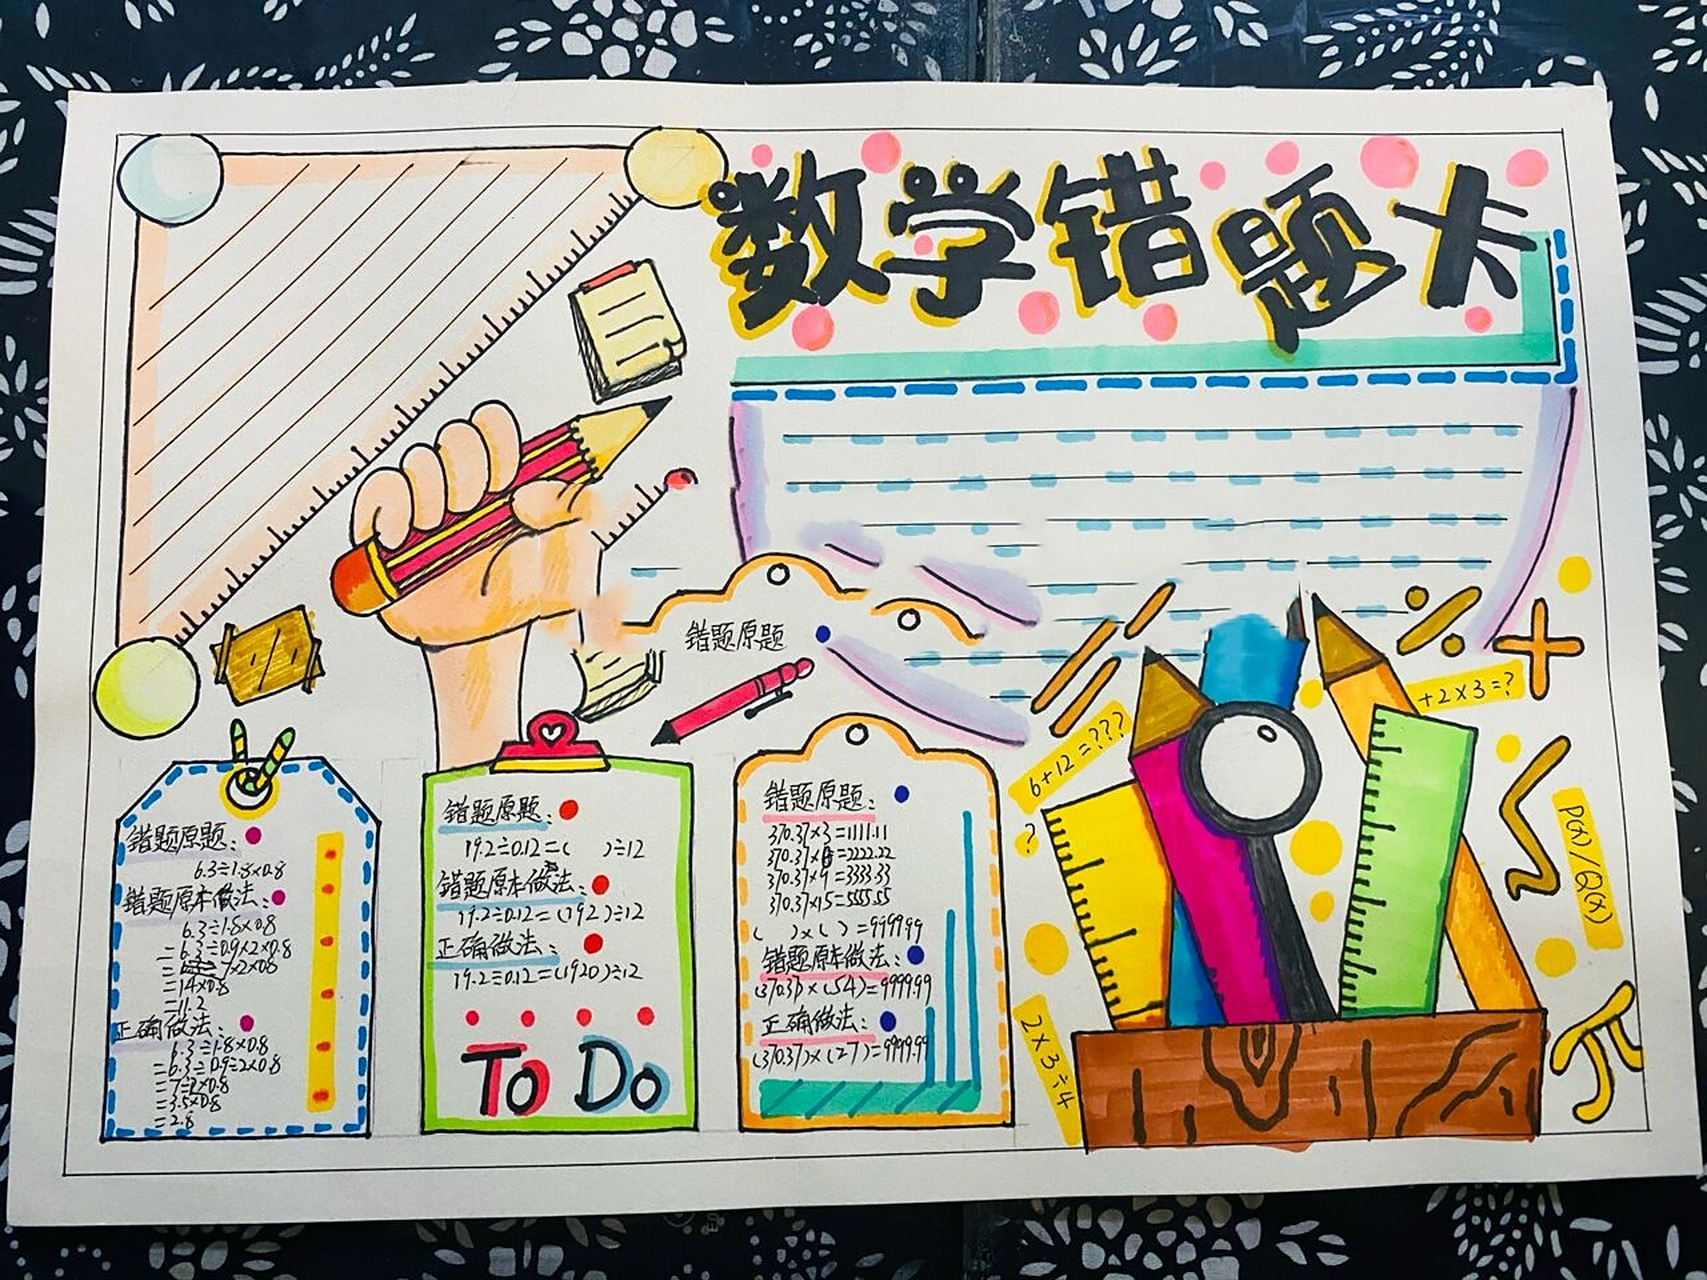 数学错题卡
错题原题
错题原题：
6.3÷1.8×0.8
错题原本做法：
6.3÷1.8×0.8
=6.3÷0.9×2×0.8
7×2×0.8
=14×0.8
=11.2
正确做法：
6.3÷1.8×0.8
=6.3÷0.9÷2×0.8
=7÷2×0.8
=3.5×0.8
=2.8
错题原题：
19.2÷0.12=(    )÷12
错题原本做法：
19.2÷0.12=(192)÷12
正确做法：
19.2÷0.12=(1920)÷12
To Do
错题原题：
370.37×3=1111.11
370.37×6=2222.22
370.37×9=3333.33
370.37×15=5555.55
(    )×(  )=9999.99
错题原本做法：
(370.37)×(54)=9999.99
正确做法：
(370.37)×(27)=9999.99
6+12=???
?
2×3÷4
+2×3=?
P(x)/Q(x)
%
+
π